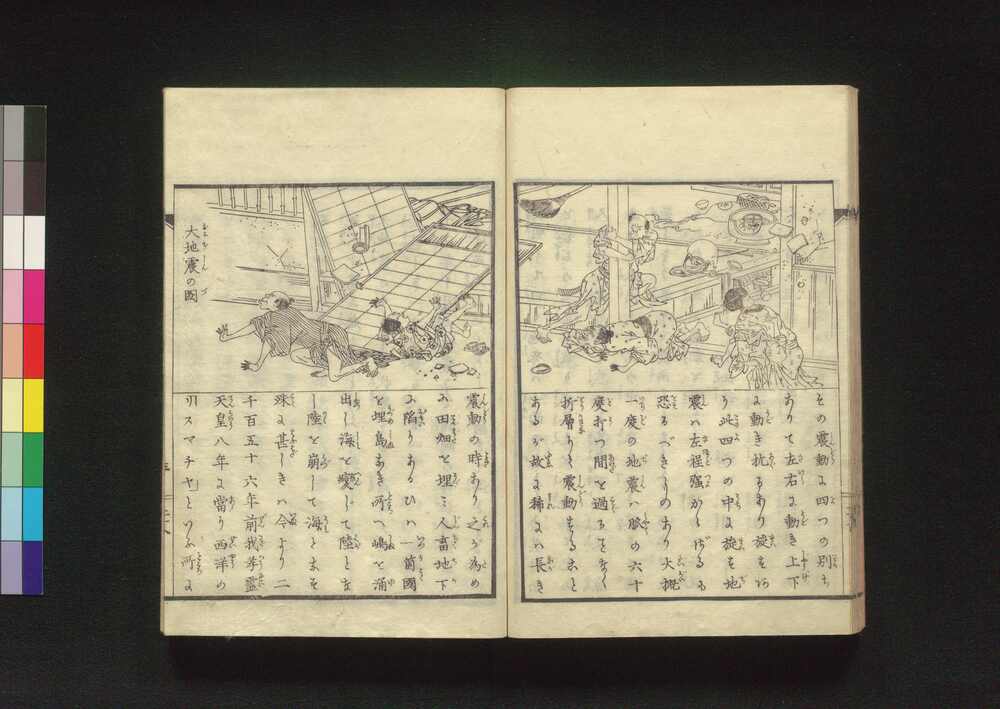 その震動に四つの別ち
ありて左右に動き上下
に動き抗るあり旋をな
り此四つの中に旋を地
震ハ左程強からざるも
恐るべきものあり大概
一度の地震ハ脈の六十
度打つ間を過ることなく
折層りて震動することと
あるが故に稀にハ長き
大地震の図
震動の時あり之が為め
に田畑を埋ミ人畜地下
に陥りあるひハ一箇國
を埋島あき所へ嶋を湧
出し海を変じて陸とな
し陸を崩して海となす
殊に甚しきハ今より二
千百五十六年前我孝霊
天皇八年に當り西洋の
「リスマチヤ」といふ所に